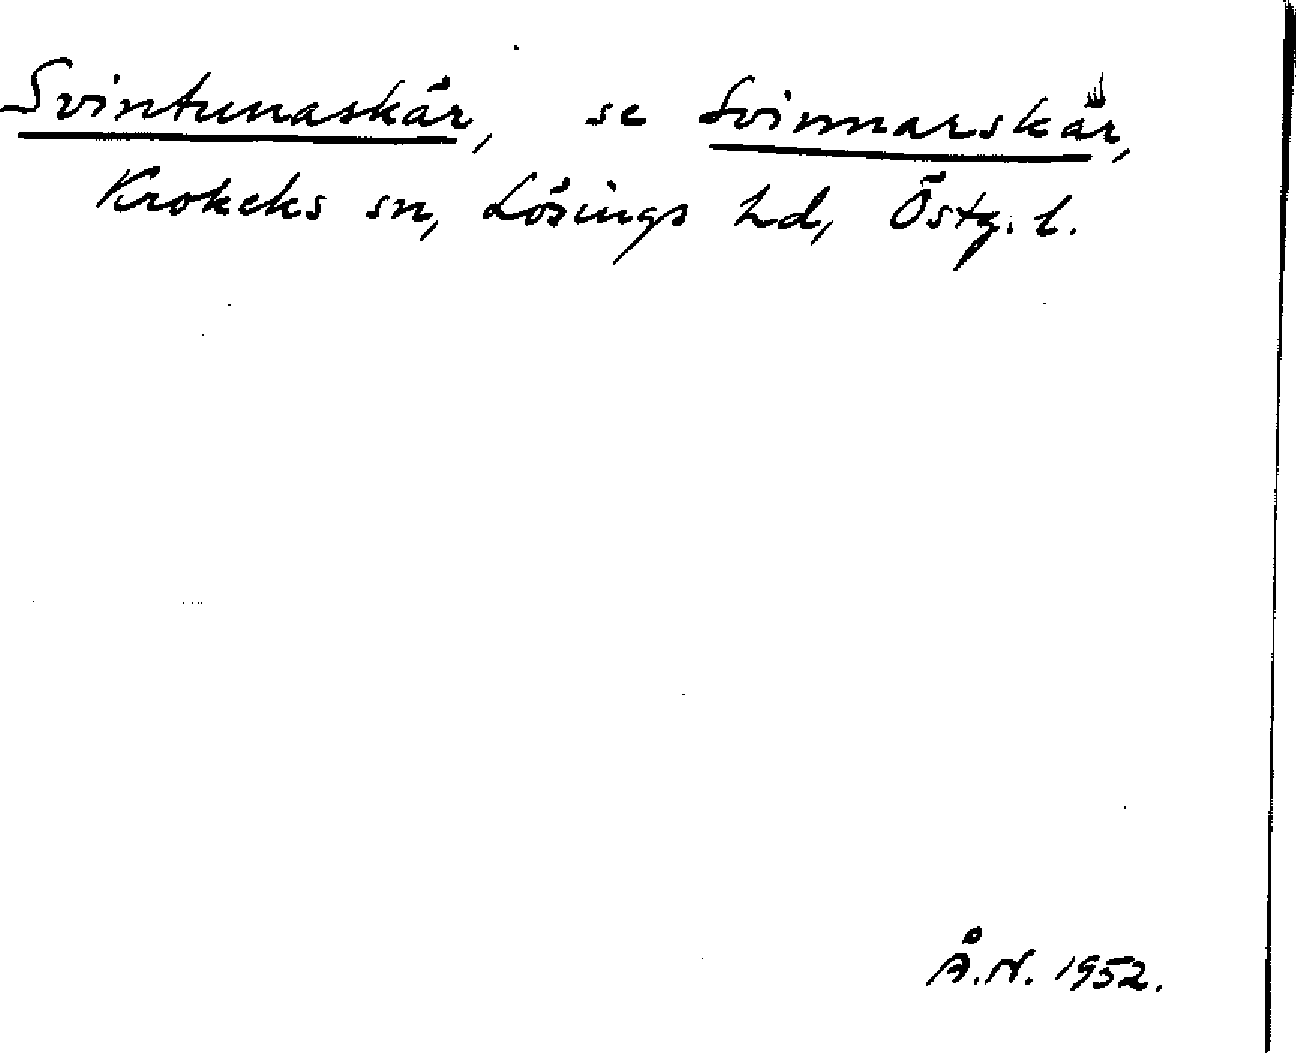 Svintunaskär, se Svinnarskär,
Krokeks sn, Lösings hd, Östg. l.
Å.N. 1952.